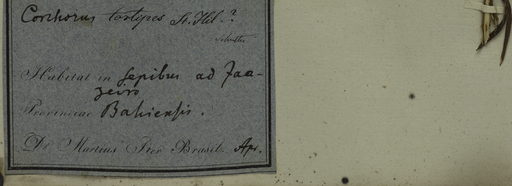 Corchorus tortipes St. Hil.?
Habitat in sepibus ad Joa-
zeiro
Provinciae Bahiensis.
Dr Martius Iter Brasil. Apr.